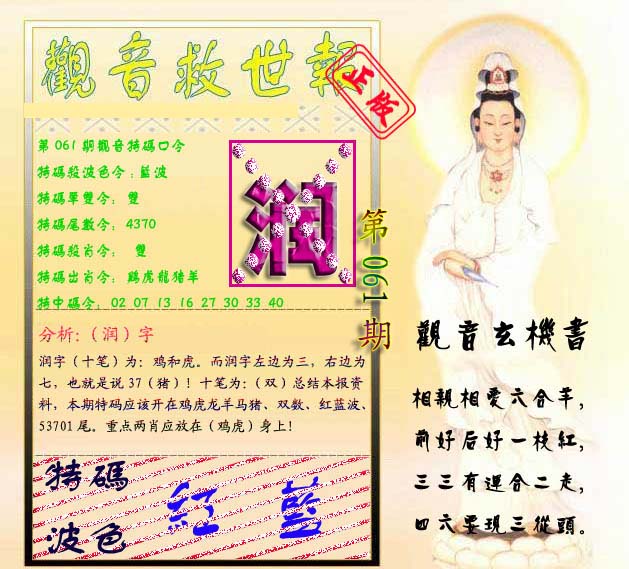 觀音救世報
正版
第061期觀音特碼口令
特碼殺波色令:藍波
特碼單雙令: 雙
特碼尾數令: 4370
特碼殺肖令: 雙
特碼出肖令: 鷄虎龍猪羊
特中碼令: 02 07 13 16 27 30 33 40
润
第061期
分析:(润)字
润字(十笔)为:鸡和虎。而润字左边为三,右边为
七,也就是说37(猪)!十笔为:(双)总结本报资
料,本期特码应该开在鸡虎龙羊马猪、双数、红蓝波、
53701尾。重点两肖应放在(鸡虎)身上!
特碼
波色
紅 藍
觀音玄機書
相親相愛六合羊,
前好后好一枝紅,
三三有運合二走,
四六要現三從頭。